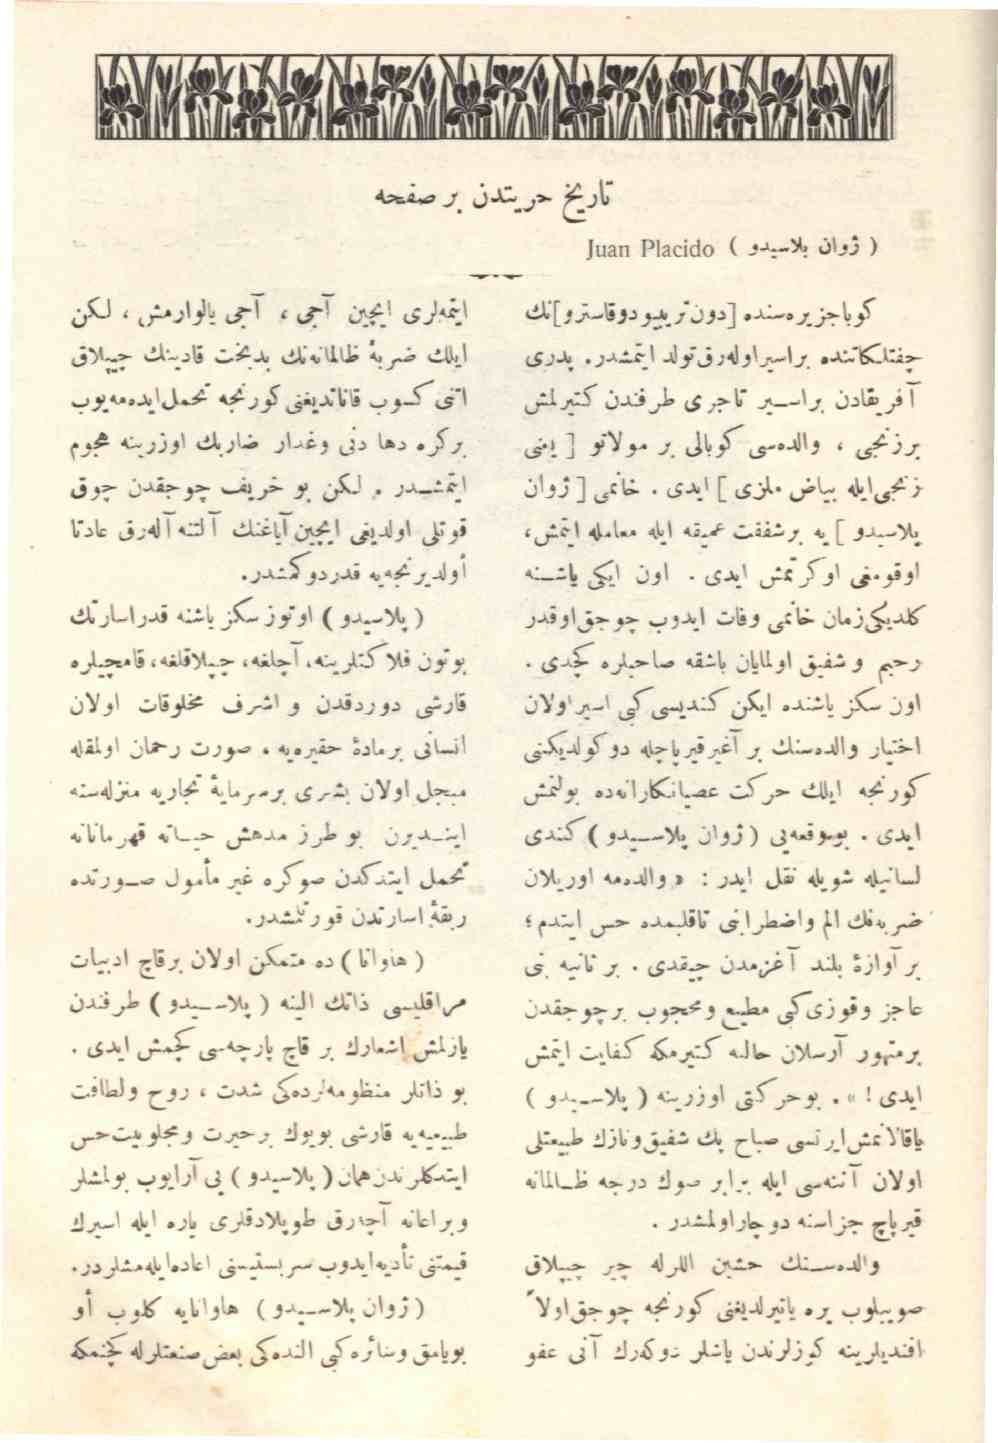 تاریخ حریتدن بر صفحه
( ژوان پلاسیدو ) Juan Placido
کوبا جزیره‌سنده [دون ترینیو دوقاسترو]نك
چفتلکاتنده بر اسیر اوله‌رق تولد ایتمشدر. پدری
آفریقادن بر اسیر تاجری طرفندن کتیرلمش
بر زنجی ، والده‌سی کوبالی بر مولاتو [ یعنی
زنجی ایله بیاض ملزی ] ایدی . خانمی [ ژوان
پلاسیدو ] یه بر شفقت عمیقه ایله معامله ایتمش،
اوقومغی اوکرتمش ایدی . اون ایکی یاشنه
کلدیکی زمان خانمی وفات ایدوب چوجق اوقدر
رحیم و شفیق اولمایان باشقه صاحبلره کچدی .
اون سکز یاشنده ایکن کندیسی کبی اسیر اولان
اختیار والده‌سنك بر آغیر قیرپاجله دوکولدیکنی
کورنجه ایلك حرکت عصیانکارانه‌ده بولنمش
ایدی . بوموقعه‌یی (ژوان پلاسیدو) کندی
لسانیله شویله نقل ایدر : « والده‌مه اوریلان
ضربه‌نك الم واضطرابنی تاقلبمده حس ایتدم ؛
بر آوازهٔ بلند آغزمدن چیقدی . بر ثانیه بنی
عاجز وقوزی کبی مطیع ومحجوب بر چوجقدن
بر متهور آرسلان حالنه کتیرمکه کفایت ایتمش
ایدی ! » . بو حرکتی اوزرینه ( پلاسیدو )
یاقالانمش ایرتسی صباح پك شفیق ونازك طبیعتلی
اولان آننه‌سی ایله برابر صوك درجه ظالمانه
قیرپاچ جزاسنه دوچار اولمشدر .
والده‌سنك خشین اللرله چیر چیپلاق
صویلوب یره یاتیرلدیغنی کورنجه چوجق اولاً
افندیلرینه کوزلرندن یاشلر دوکه‌رك آنی عفو
ایتمه‌لری ایچین آجی ، آجی یالوارمش ، لکن
ایلك ضربهٔ ظالمانه‌نك بدبخت قادینك چیپلاق
اتنی کسوب قاناتدیغنی کورنجه تحمل ایده‌مه‌یوب
بر کره دها دنی وغدار ضاربك اوزرینه هجوم
ایتمشدر . لکن بو خریف چوجقدن چوق
قوتلی اولدیغی ایچین آیاغنك آلتنه آله‌رق عادتا
أولدیرنجه‌یه قدر دوکمشدر.
( پلاسیدو ) اوتوز سکز یاشنه قدر اسارتك
بوتون فلاکتلرینه، آچلغه، چیپلاقلغه، قامچیلره
قارشی دوردقدن و اشرف مخلوقات اولان
انسانی بر مادهٔ حقیره‌یه ، صورت رحمان اولمقله
مبجل اولان بشری بر سرمایهٔ تجاریه منزله‌سنه
ایندیرن بو طرز مدهش حیاته قهرمانانه
تحمل ایتدکدن صوکره غیر مأمول صورتده
ربقهٔ اسارتدن قورتلمشدر.
( هاوانا ) ده متمکن اولان برقاچ ادبیات
مراقلیسی ذاتك الینه ( پلاسیدو ) طرفندن
یازلمش اشعارك بر قاچ پارچه‌سی کچمش ایدی .
بو ذاتلر منظومه‌لرده‌کی شدت ، روح ولطافت
طبیعیه‌یه قارشی بویوك بر حیرت ومجلوبیت حس
ایتدکلرندن همان ( پلاسیدو ) یی آرایوب بولمشلر
وبر اعانه آچه‌رق طوپلادقلری پاره ایله اسیرك
قیمتنی تأدیه ایدوب سربستیسنی اعاده ایله‌مشلردر.
( ژوان پلاسیدو ) هاوانایه کلوب أو
بویامق وسائره کبی الندەکی بعض صنعتلرله کچنمکه